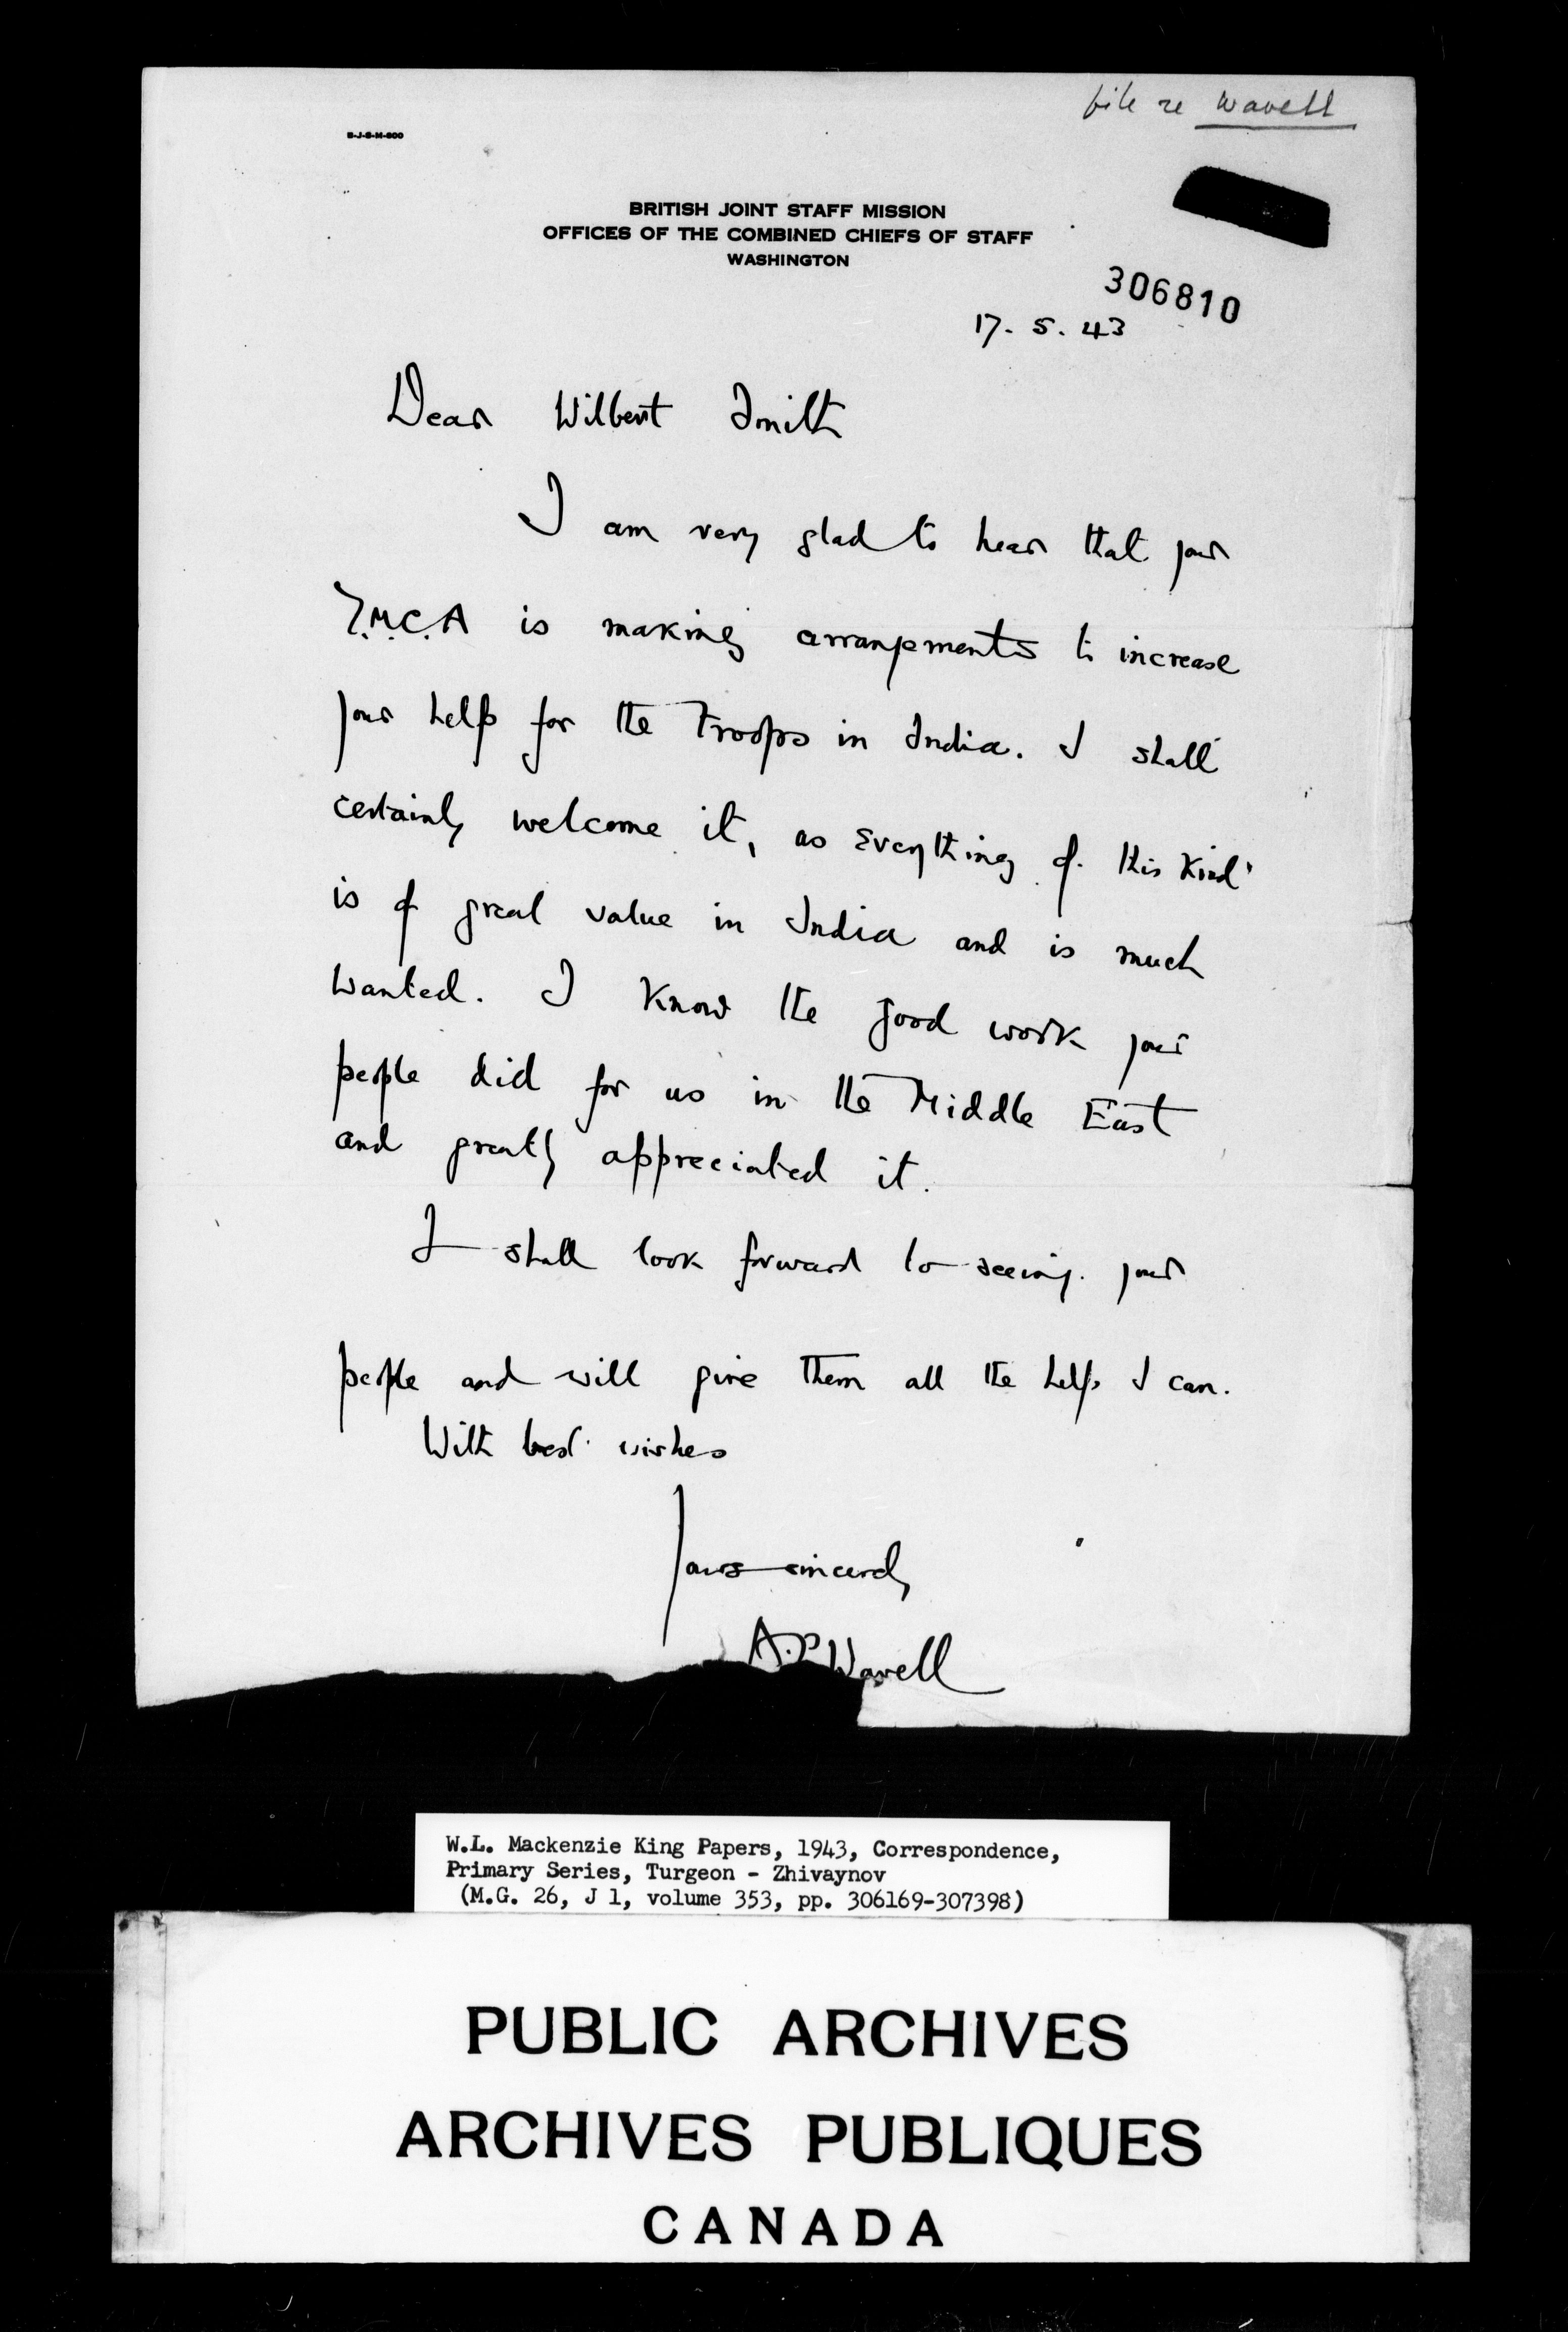 file re Wavell
B-J-S-M-600
BRITISH JOINT STAFF MISSION
OFFICES OF THE COMBINED CHIEFS OF STAFF
WASHINGTON
306810
17. 5. 43
Dear Wilbert Smith
I am very glad to hear that your
Y.M.C.A is making arrangements to increase
your help for the Troops in India. I shall
certainly welcome it, as everything of this kind
is of great value in India and is much
wanted. I know the good work your
people did for us in the Middle East
and greatly appreciated it.
I shall look forward to seeing your
people and will give them all the help I can.
With best wishes
Yours sincerely
A.P. Wavell
W.L. Mackenzie King Papers, 1943, Correspondence,
Primary Series, Turgeon - Zhivaynov
(M.G. 26, J 1, volume 353, pp. 306169-307398)
PUBLIC ARCHIVES
ARCHIVES PUBLIQUES
CANADA